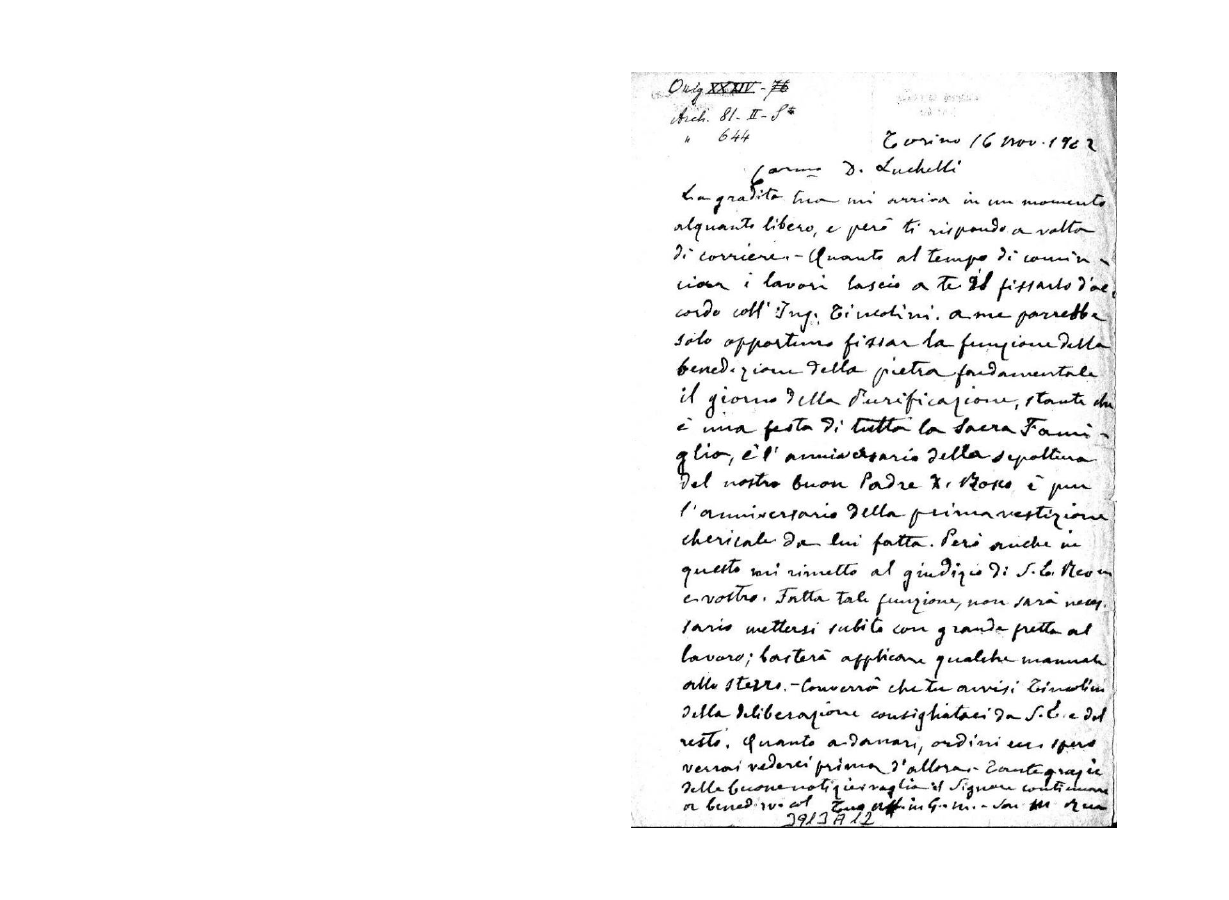 Orig XXXIV - 76
Arch. 81 - II - Sta
" 644
Torino 16 nov. 1902
Carmo D. Luchelli
La gradita tua mi arriva in un momento
alquanto libero, e però ti rispondo a volta
di corriere. - Quanto al tempo di comin-
ciar i lavori lascio a te il fissarlo d'ac-
cordo coll' Ing. Tincolini. a me parrebbe
solo opportuno fissar la funzione della
benedizione della pietra fondamentale
il giorno della Purificazione, stante che
è una festa di tutta la Sacra Fami-
glia, è l'anniversario della sepoltura
del nostro buon Padre D. Bosco è pur
l'anniversario della prima vestizione
chericale da lui fatta. Però anche in
questo mi rimetto al giudizio di S. E. Rev.m
e vostro. Fatta tale funzione, non sarà neces-
sario mettersi subito con grande fretta al
lavoro; basterà applicare qualche manuale
allo sterro. - Converrà che tu avvisi Tincolini
della deliberazione consigliataci da S. E. e del
resto. Quanto a danari, ordini ecc. spero
verrai vederci prima d'allora. - Tante grazie
delle buone notizie; voglia il Signore continuare
a benedirvi
Tuo aff in G. m. - Sac
3913 A 12